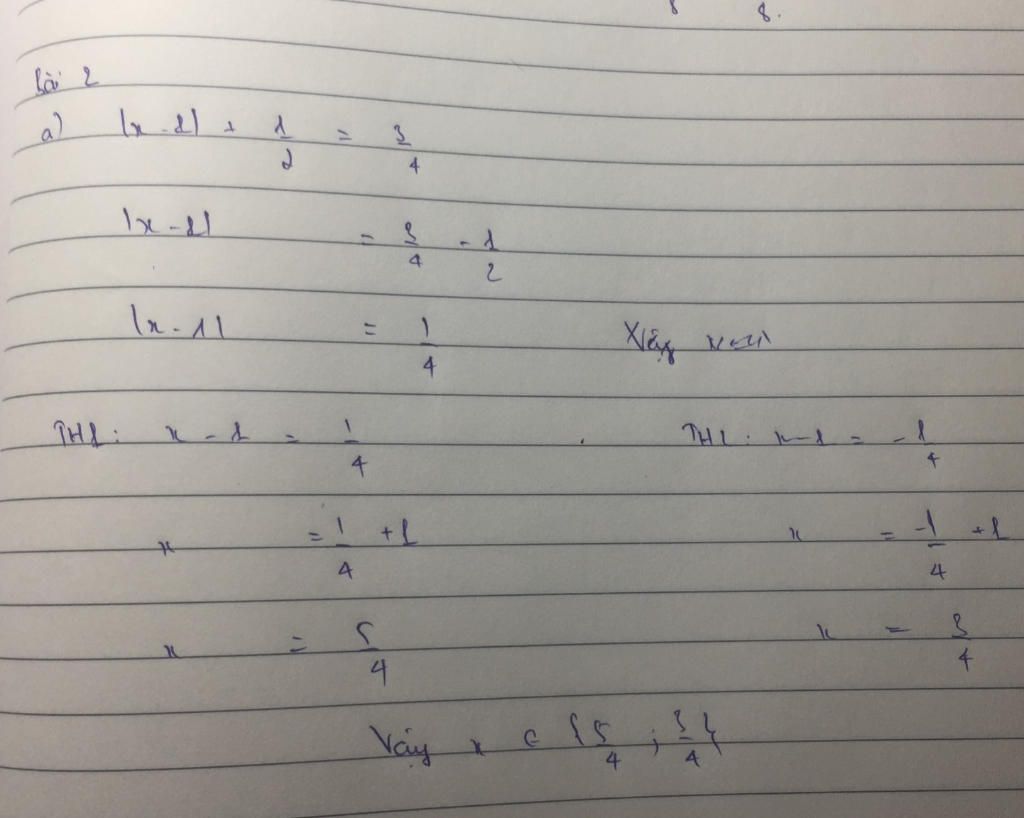 8 8.
Bài 2
a) |x - 1| + 1/2 = 3/4
|x - 1| = 3/4 - 1/2
|x - 1| = 1/4 Vậy
TH1: x - 1 = 1/4 TH2: x - 1 = -1/4
x = 1/4 + 1 x = -1/4 + 1
x = 5/4 x = 3/4
Vậy x ∈ {5/4 ; 3/4}